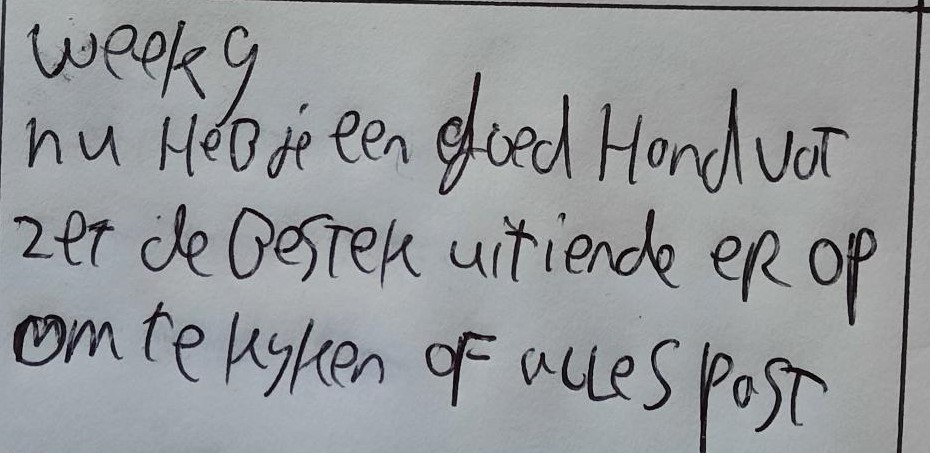 week 9
nu Heb je een goed Handvat
zet de Bestek uitiende er op
om te kyken of alles past